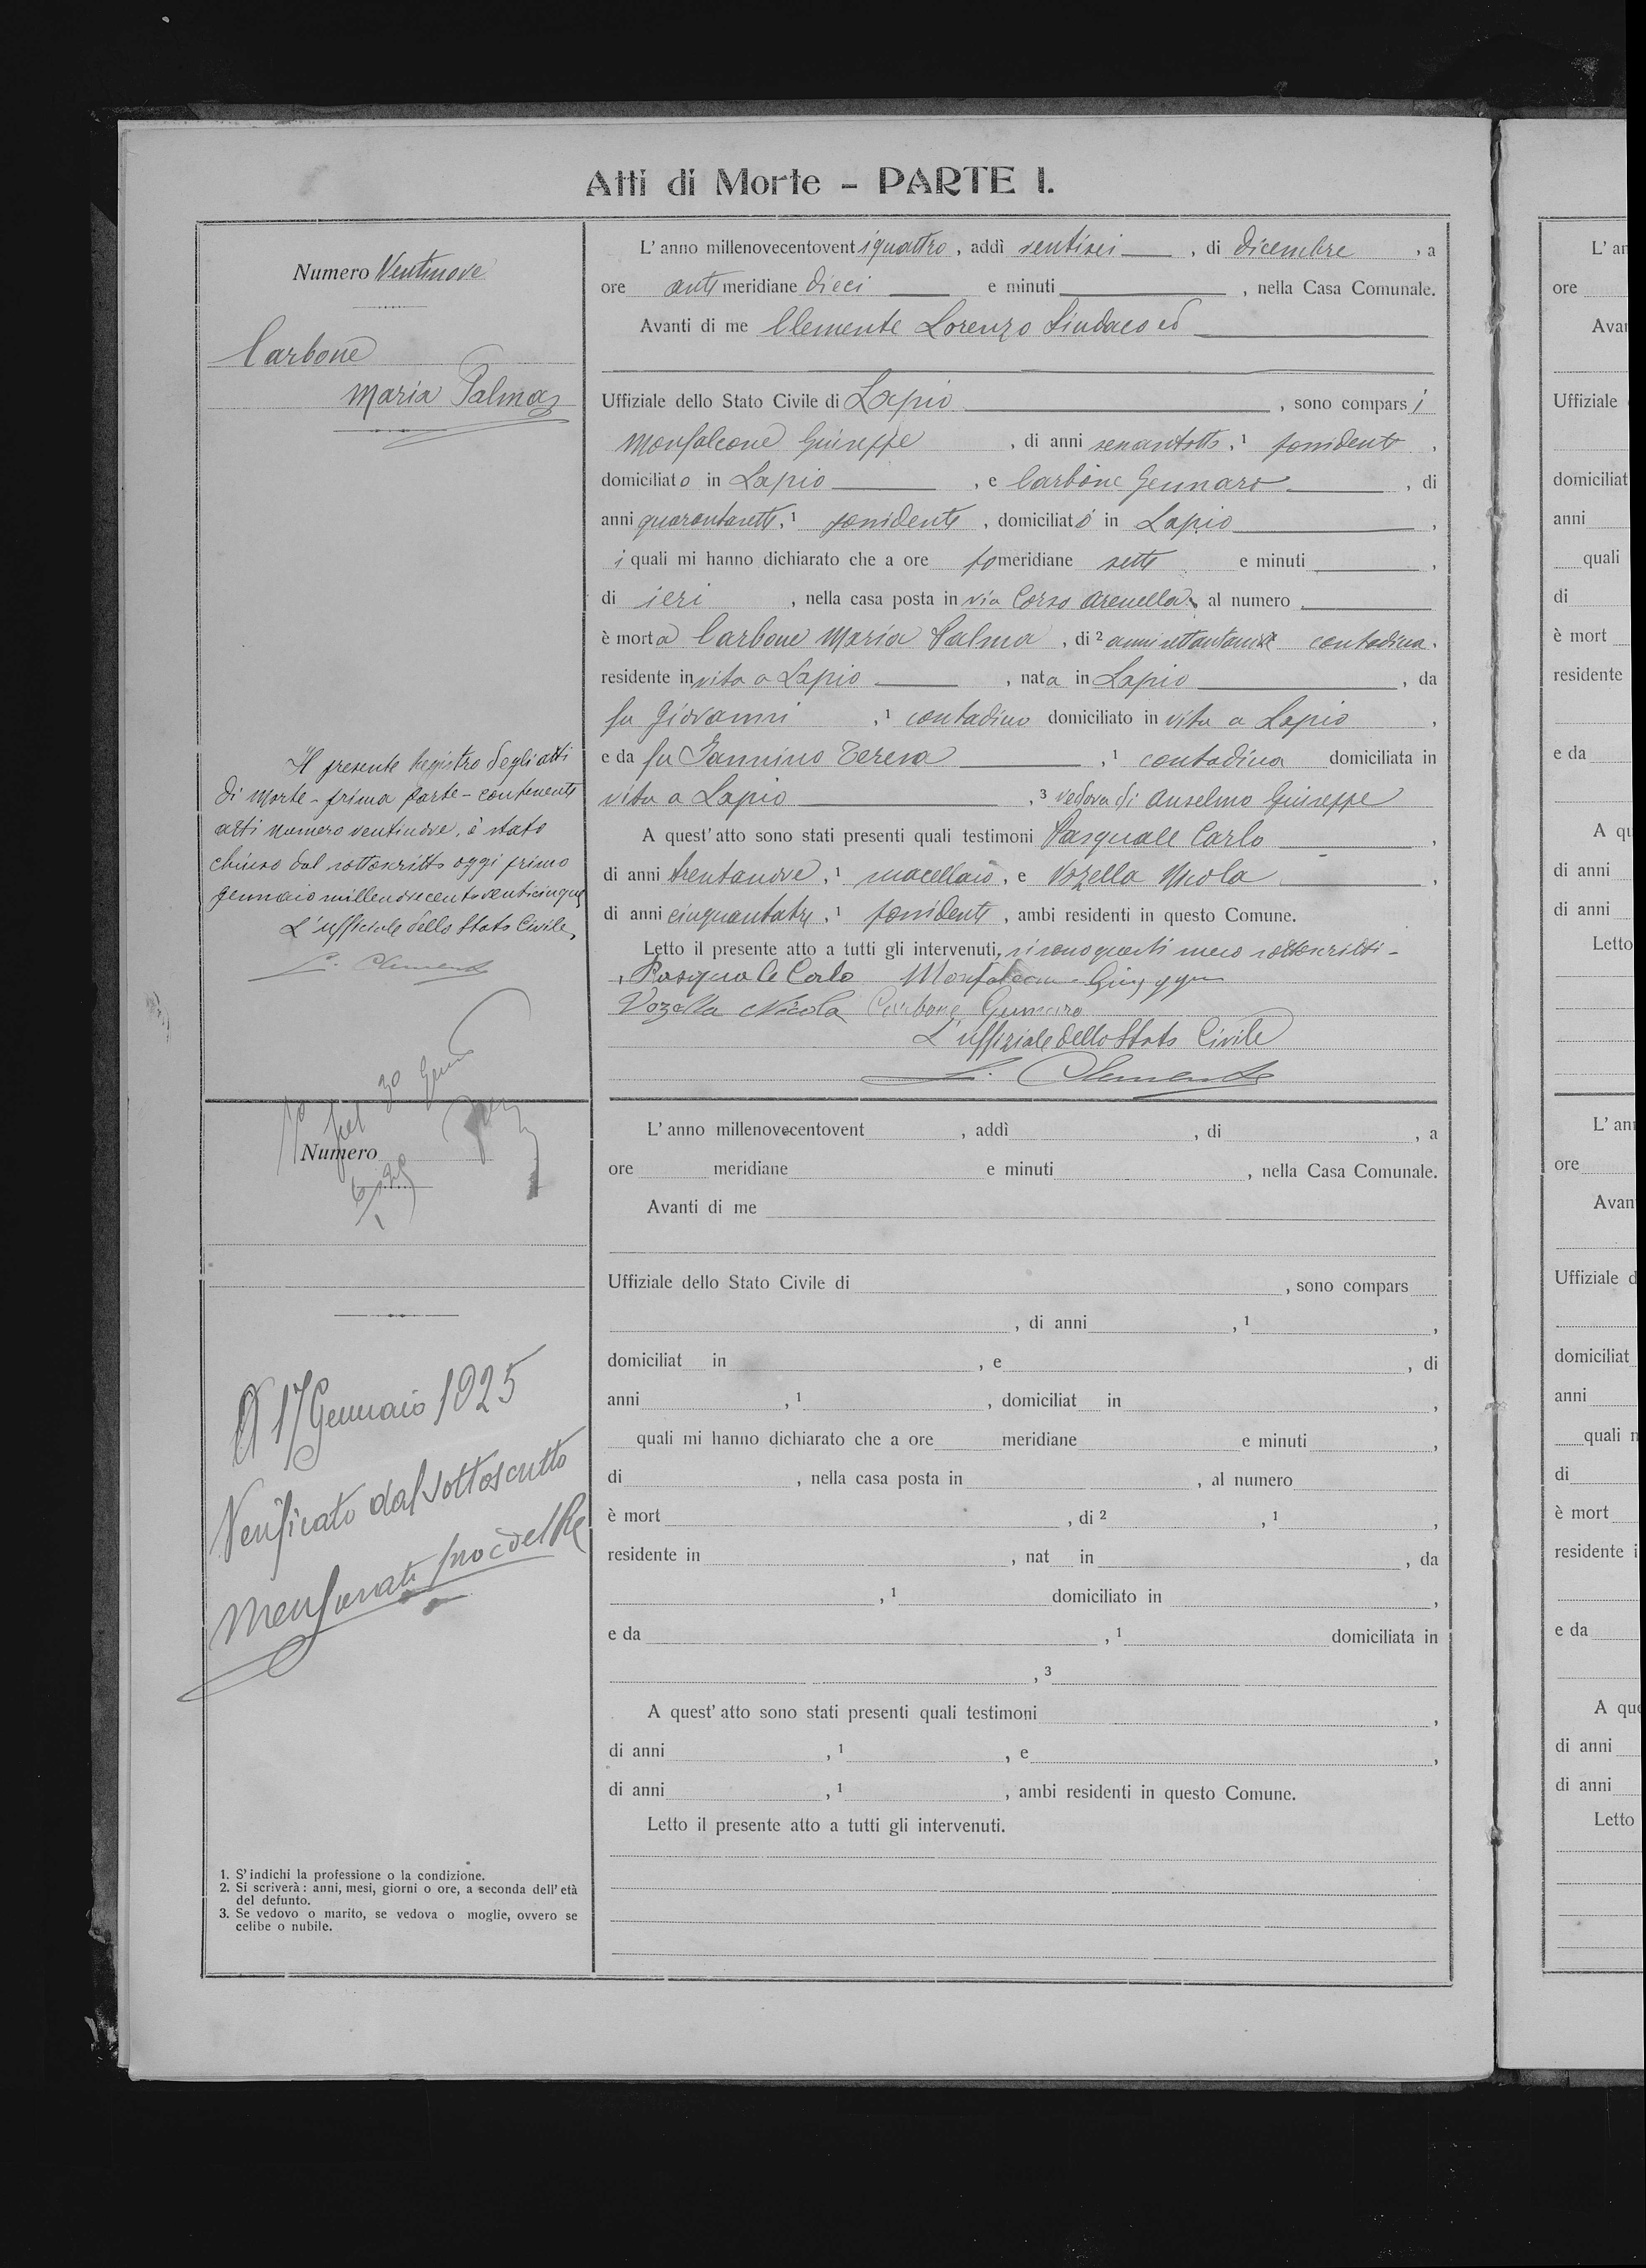 Atti di Morte - PARTE I.
Numero Ventinove
Carbone
Maria Palma
L'anno millenovecentoventiquattro, addì ventisei, di dicembre, a
ore antimeridiane dieci e minuti, nella Casa Comunale.
Avanti di me Clemente Lorenzo Sindaco ed
Uffiziale dello Stato Civile di Lapio, sono comparsi
Monfalcone Giuseppe, di anni,¹ possidente,
domiciliato in Lapio, e Carbone Gennaro, di
anni quarantasette,¹ possidente, domiciliato in Lapio,
i quali mi hanno dichiarato che a ore pomeridiane sette e minuti,
di ieri, nella casa posta in via Corso Arenella, al numero
è morta Carbone Maria Palma, di² anni contadina,
residente in vita a Lapio, nata in Lapio, da
fu Giovanni,¹ contadino domiciliato in vita a Lapio,
e da fu Iannino Teresa,¹ contadina domiciliata in
vita a Lapio,³ vedova di Anselmo Giuseppe
A quest'atto sono stati presenti quali testimoni Pasquale Carlo,
di anni trentanove,¹ macellaio, e Vozella Nicola,
di anni cinquantatre,¹ possidente, ambi residenti in questo Comune.
Letto il presente atto a tutti gli intervenuti, si sono questi meco sottoscritti-
Pasquale Carlo Monfalcone Giuseppe
Vozella Nicola Carbone Gennaro
L'uffiziale dello Stato Civile
L. Clemente
Il presente Registro degli atti
di Morte - prima parte - contenente
atti numero ventinove, è stato
chiuso dal sottoscritto oggi primo
gennaio millenovecentoventicinque
L'ufficiale dello Stato Civile,
L. Clemente
Numero
L'anno millenovecentovent, addì, di, a
ore meridiane e minuti, nella Casa Comunale.
Avanti di me
Uffiziale dello Stato Civile di, sono compars
, di anni,¹,
domiciliat in, e, di
anni,¹, domiciliat in,
quali mi hanno dichiarato che a ore meridiane e minuti,
di, nella casa posta in, al numero
è mort, di²,¹,
residente in, nat in, da
,¹ domiciliato in,
e da,¹ domiciliata in
,³
A quest'atto sono stati presenti quali testimoni,
di anni,¹, e,
di anni,¹, ambi residenti in questo Comune.
Letto il presente atto a tutti gli intervenuti.
A 17 Gennaio 1925
Verificato dal sottoscritto
proc del Re
1. S'indichi la professione o la condizione.
2. Si scriverà: anni, mesi, giorni o ore, a seconda dell'età
del defunto.
3. Se vedovo o marito, se vedova o moglie, ovvero se
celibe o nubile.
L'an
ore
Avan
Uffiziale
domiciliat
anni
quali
di
è mort
residente
e da
A qu
di anni
di anni
Letto
L'an
ore
Avan
Uffiziale d
domiciliat
anni
quali n
di
è mort
residente i
e da
A que
di anni
di anni
Letto